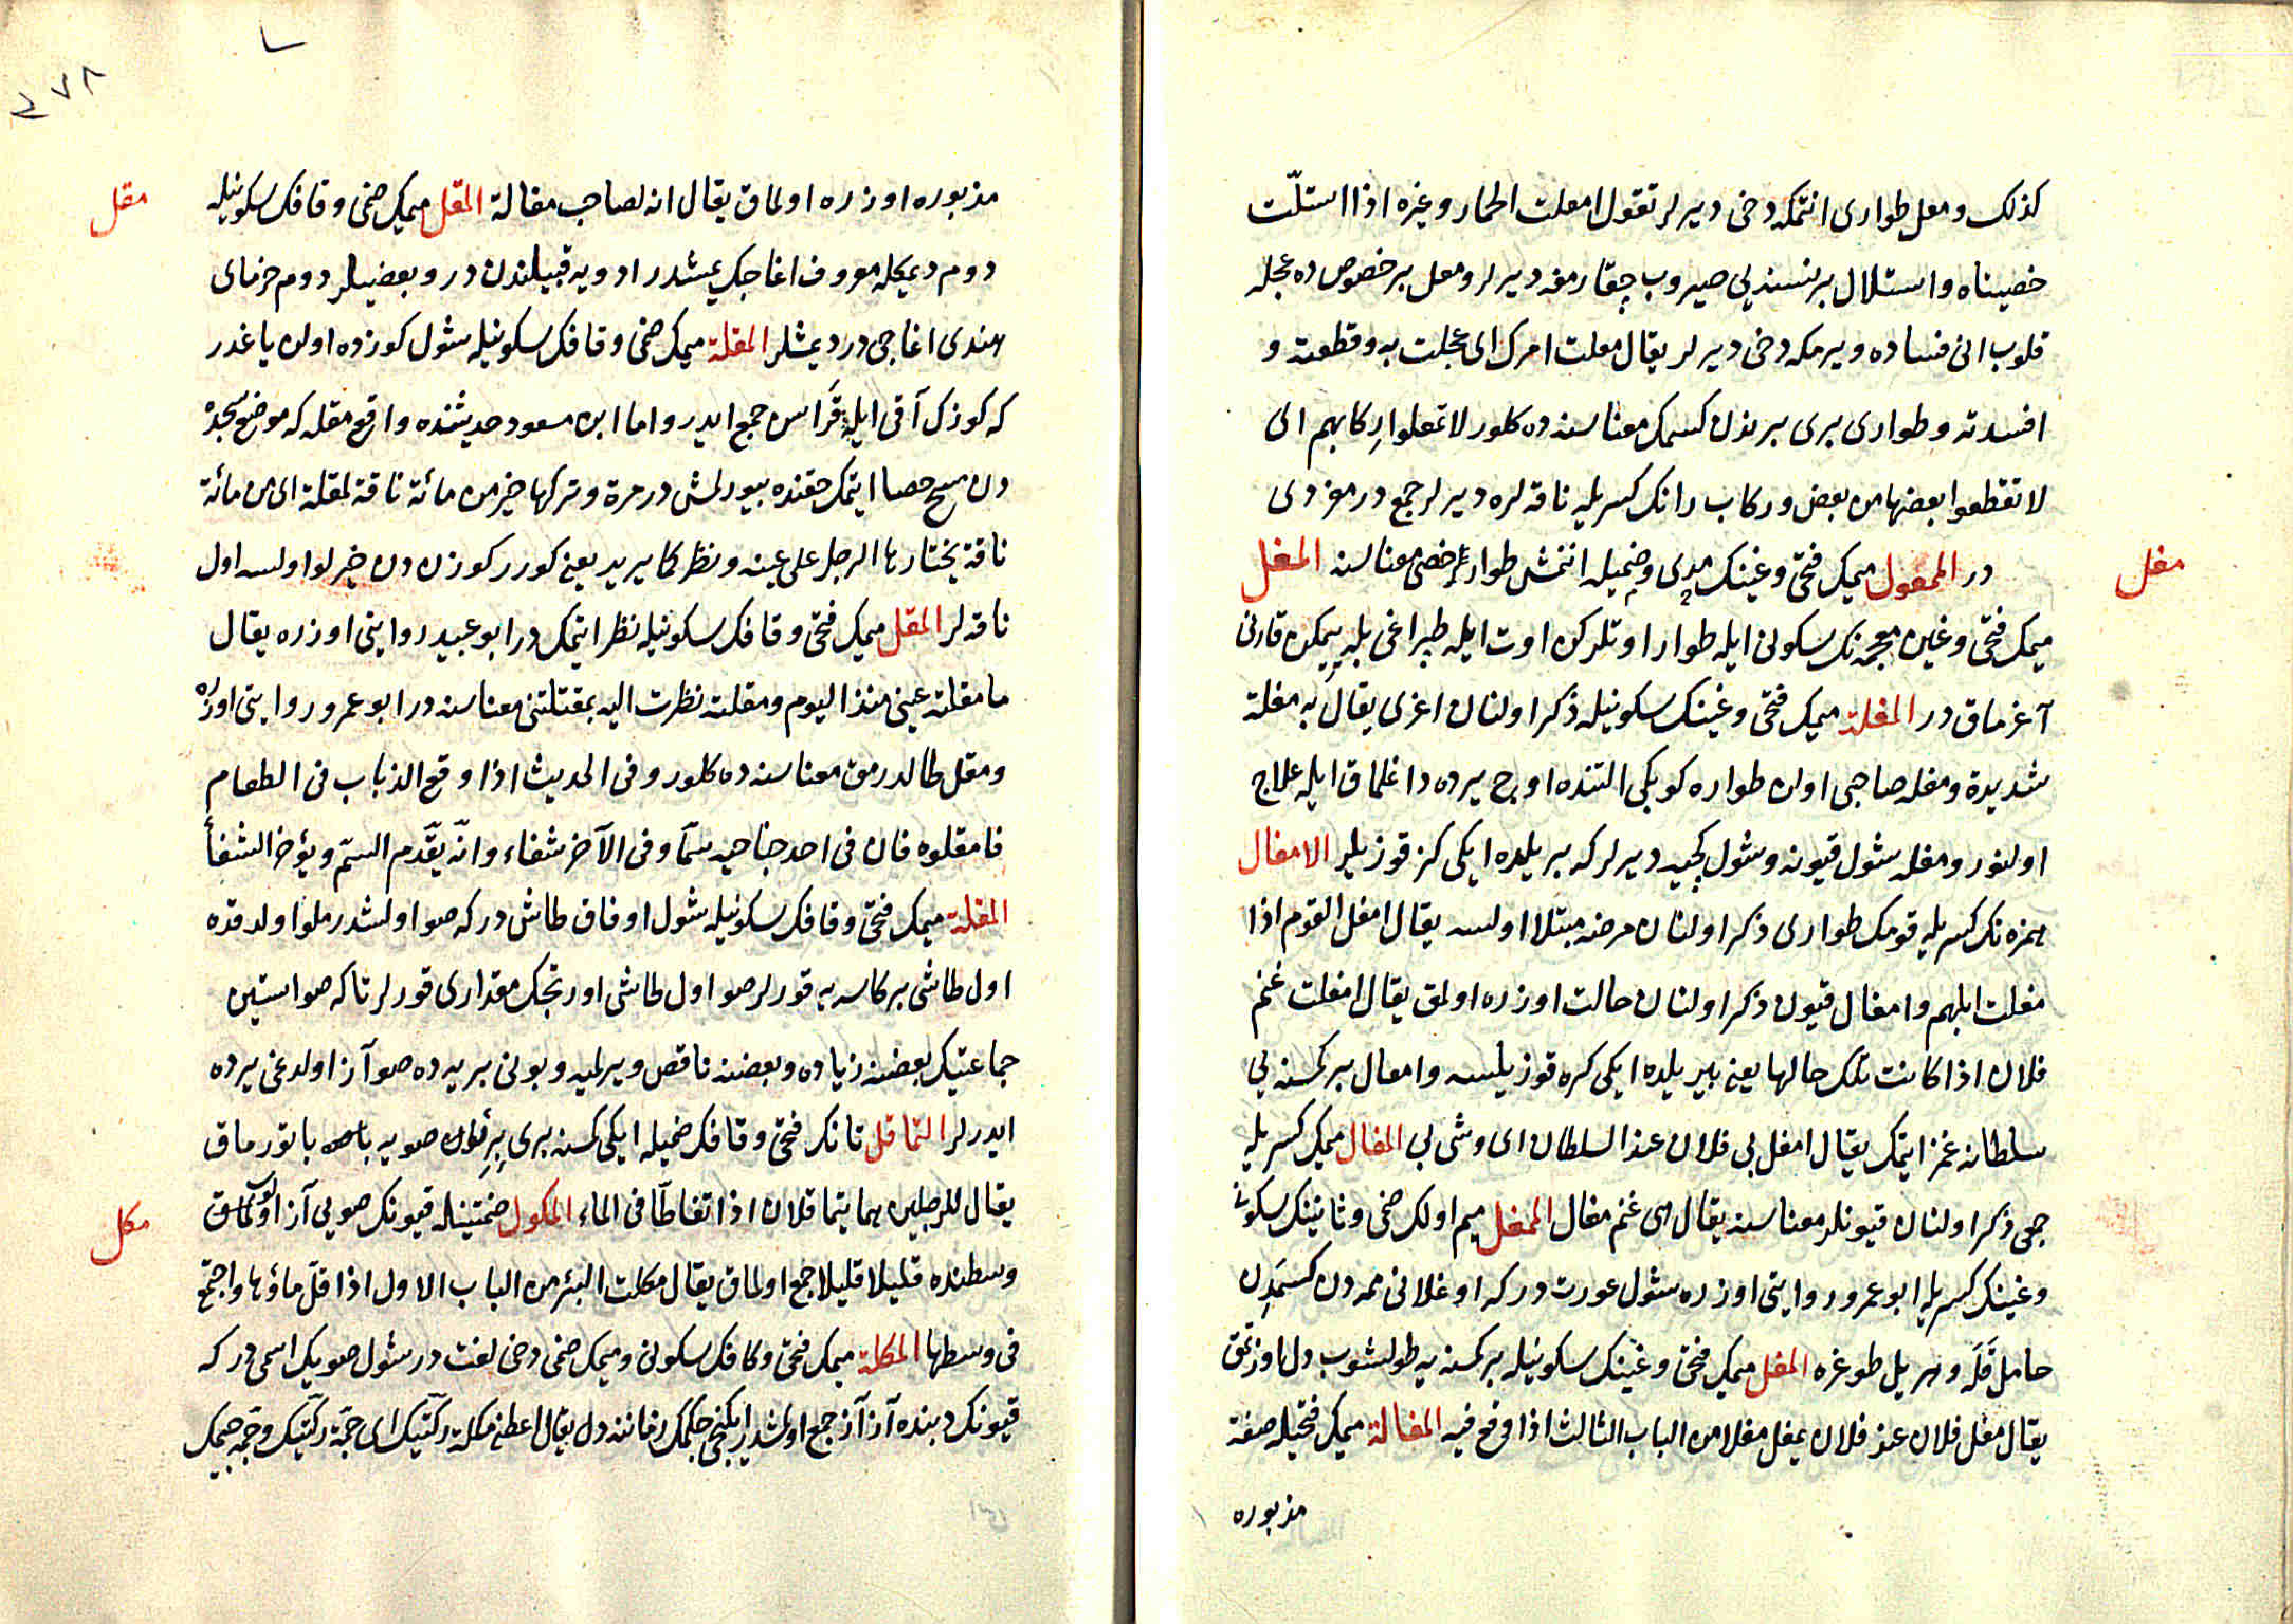 كذلك ومعل طوارى انتمكه دخى ديرلر تقول امعلت الحمار وغيره اذا استلّت
خصيتاه واستلال برنسنه يى صيروب چقارمغه ديرلر ومعل برخصوص ده عجله
قلوب انى فساده ويرمكه دخى ديرلر يقال معلت امرك اى عجلت به وقطعته و
افسدته وطوارى برى برندن كسمك معناسنه ده كلور لاتمعلوا ركابهم اى
لاتقطعوا بعضها من بعض وركاب رانك كسريله ناقه لره ديرلر جمع در مفردى
مغل
در الممعول ميمك فتحى وعينك مدى وضميله اننمش طوار خصى معناسنه المغل
ميمك فتحى وغين معجمه نك سكونى ايله طوار اوتلركن اوت ايله طپراغى بله ييمكن قارنى
آغرماق در المغلة ميمك فتحى وغينك سكونيله ذكر اولنان اغرى يقال به مغلة
شديدة ومغله صاحبى اولن طواره كوبكى التنده اوچ يرده داغلماق ايله علاج
اولنور ومغله شول قيونه وشول كچيه ديرلر كه بر يلده ايكى كز قوزيلر الامغال
همزه نك كسريله قومك طوارى ذكر اولنان مرضه مبتلا اولسه يقال امغل القوم اذا
مغلت ابلهم وامغال قيون ذكر اولنان حالت اوزره اولمق يقال امغلت غنم
فلان اذا كانت تلك حالها يعنى بير يلده ايكى كره قوزيلسه وامغال بر كمسنه يى
سلطانه غمز ايتمك يقال امغل بى فلان عند السلطان اى وشى بى المغال ميمك كسريله
جمى ذكر اولنان قيونلر معناسنه يقال هى غنم مغال الممغل ميم اولك ضمى وثانينك سكونى
وغينك كسريله ابو عمرو روايتى اوزره شول عورت در كه اوغلانى ممه دن كسمدن
حامل قله وهر يل طوغره المغل ميمك فتحى وغينك سكونيله بر كمسنه يه طولشوب دل اوزتمق
يقال مغل فلان عند فلان يمغل مغلا من الباب الثالث اذا وقع فيه المغالة ميمك فتحيله صفة
مذبوره
٢٧٨
مذبوره اوزره اولماق يقال انه لصاحب مغالة المقل ميمك ضمى وقافك سكونيله
مقل
دوم ديمكله معروف اغاجك يمشدر ادويه قبيلندن در وبعضيلر دوم خرماى
هندى اغاجى در ديمشلر المقلة ميمك ضمى وقافك سكونيله شول كوزده اولن ياغدر
كه كوزك آقى ايله قراسن جمع ايدر واما ابن مسعود حديثنده واقع مقله كه موضع سجده
دن مسح حصا ايتمك حقنده بيورلمش در مرة وتركها خير من مائة ناقة لمقلة اى من مائة
ناقة يختارها الرجل على عينه ونظره كما يريد يعنى كورر كوزن دن خيرلو اولسه اول
ناقه لر المقل ميمك فتحى وقافك سكونيله نظر ايتمك در ابو عبيد روايتى اوزره يقال
ما مقلته عينى منذ اليوم ومقلته نظرت اليه بمقلتى معناسنه در ابو عمرو روايتى اوزره
ومقل طالدرمق معناسنه ده كلور وفى الحديث اذا وقع الذباب فى الطعام
فامقلوه فان فى احد جناحيه سمّا وفى الآخر شفاء وانّه يقدّم السمّ ويؤخر الشفاء
المقلة ميمك فتحى وقافك سكونيله شول اوفاق طاش در كه صو اولشدرملو اولدقده
اول طاشى بر كاسه يه قورلر صو اول طاشى اورتجك مقدارى قورلر تا كه صو استين
جماعتيك بعضنه زياده وبعضنه ناقص ويرلميه وبونى بر يرده صو آز اولدغى يرده
ايدرلر التماقل تانك فتحى وقافك ضميله ايكى كسنه برى برلرن صويه باتورماق
يقال للرجلين هما يتماقلان اذا تغاطّا فى الماء المكول ضمتينله قيونك صويى آز اولمق
مكل
وسطنده قليلا قليلا جمع اولماق يقال مكلت البئر من الباب الاول اذا قلّ ماؤها واجتمع
فى وسطها المكلة ميمك فتحى وكافك سكونى وميمك ضمى دخى لغت در شول صويك اسمى در كه
قيونك دبنده آز آز جمع اولمشدر ايكنجى چكمك زماننه دل يقال اعطنى مكلة ركيتك اى جمّة ركيتك وجمه جيمك